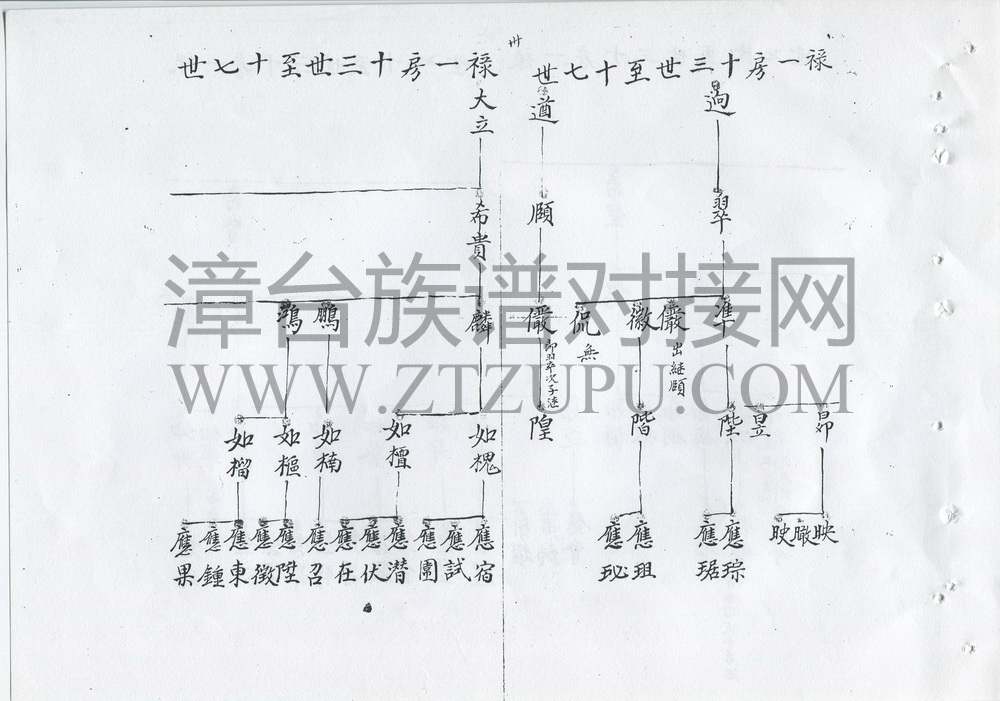 卅
祿一房十三世至十七世
過
翠
準 儼 出継頤
徽
侃 無
昴 昱
陛
階
映 瞰 映
應琮 應琚
應珇 應玜
遒
頤
儼 即翠次子過継
隍
祿一房十三世至十七世
大立
希貴
麟 鵬 鴻
如槐 如檀
如楠
如樞 如榴
應宿 應試 應圍
應潛 應伏 應在
應召
應陞 應徵
應東 應鍾 應果
漳台族谱对接网
WWW.ZTZUPU.COM